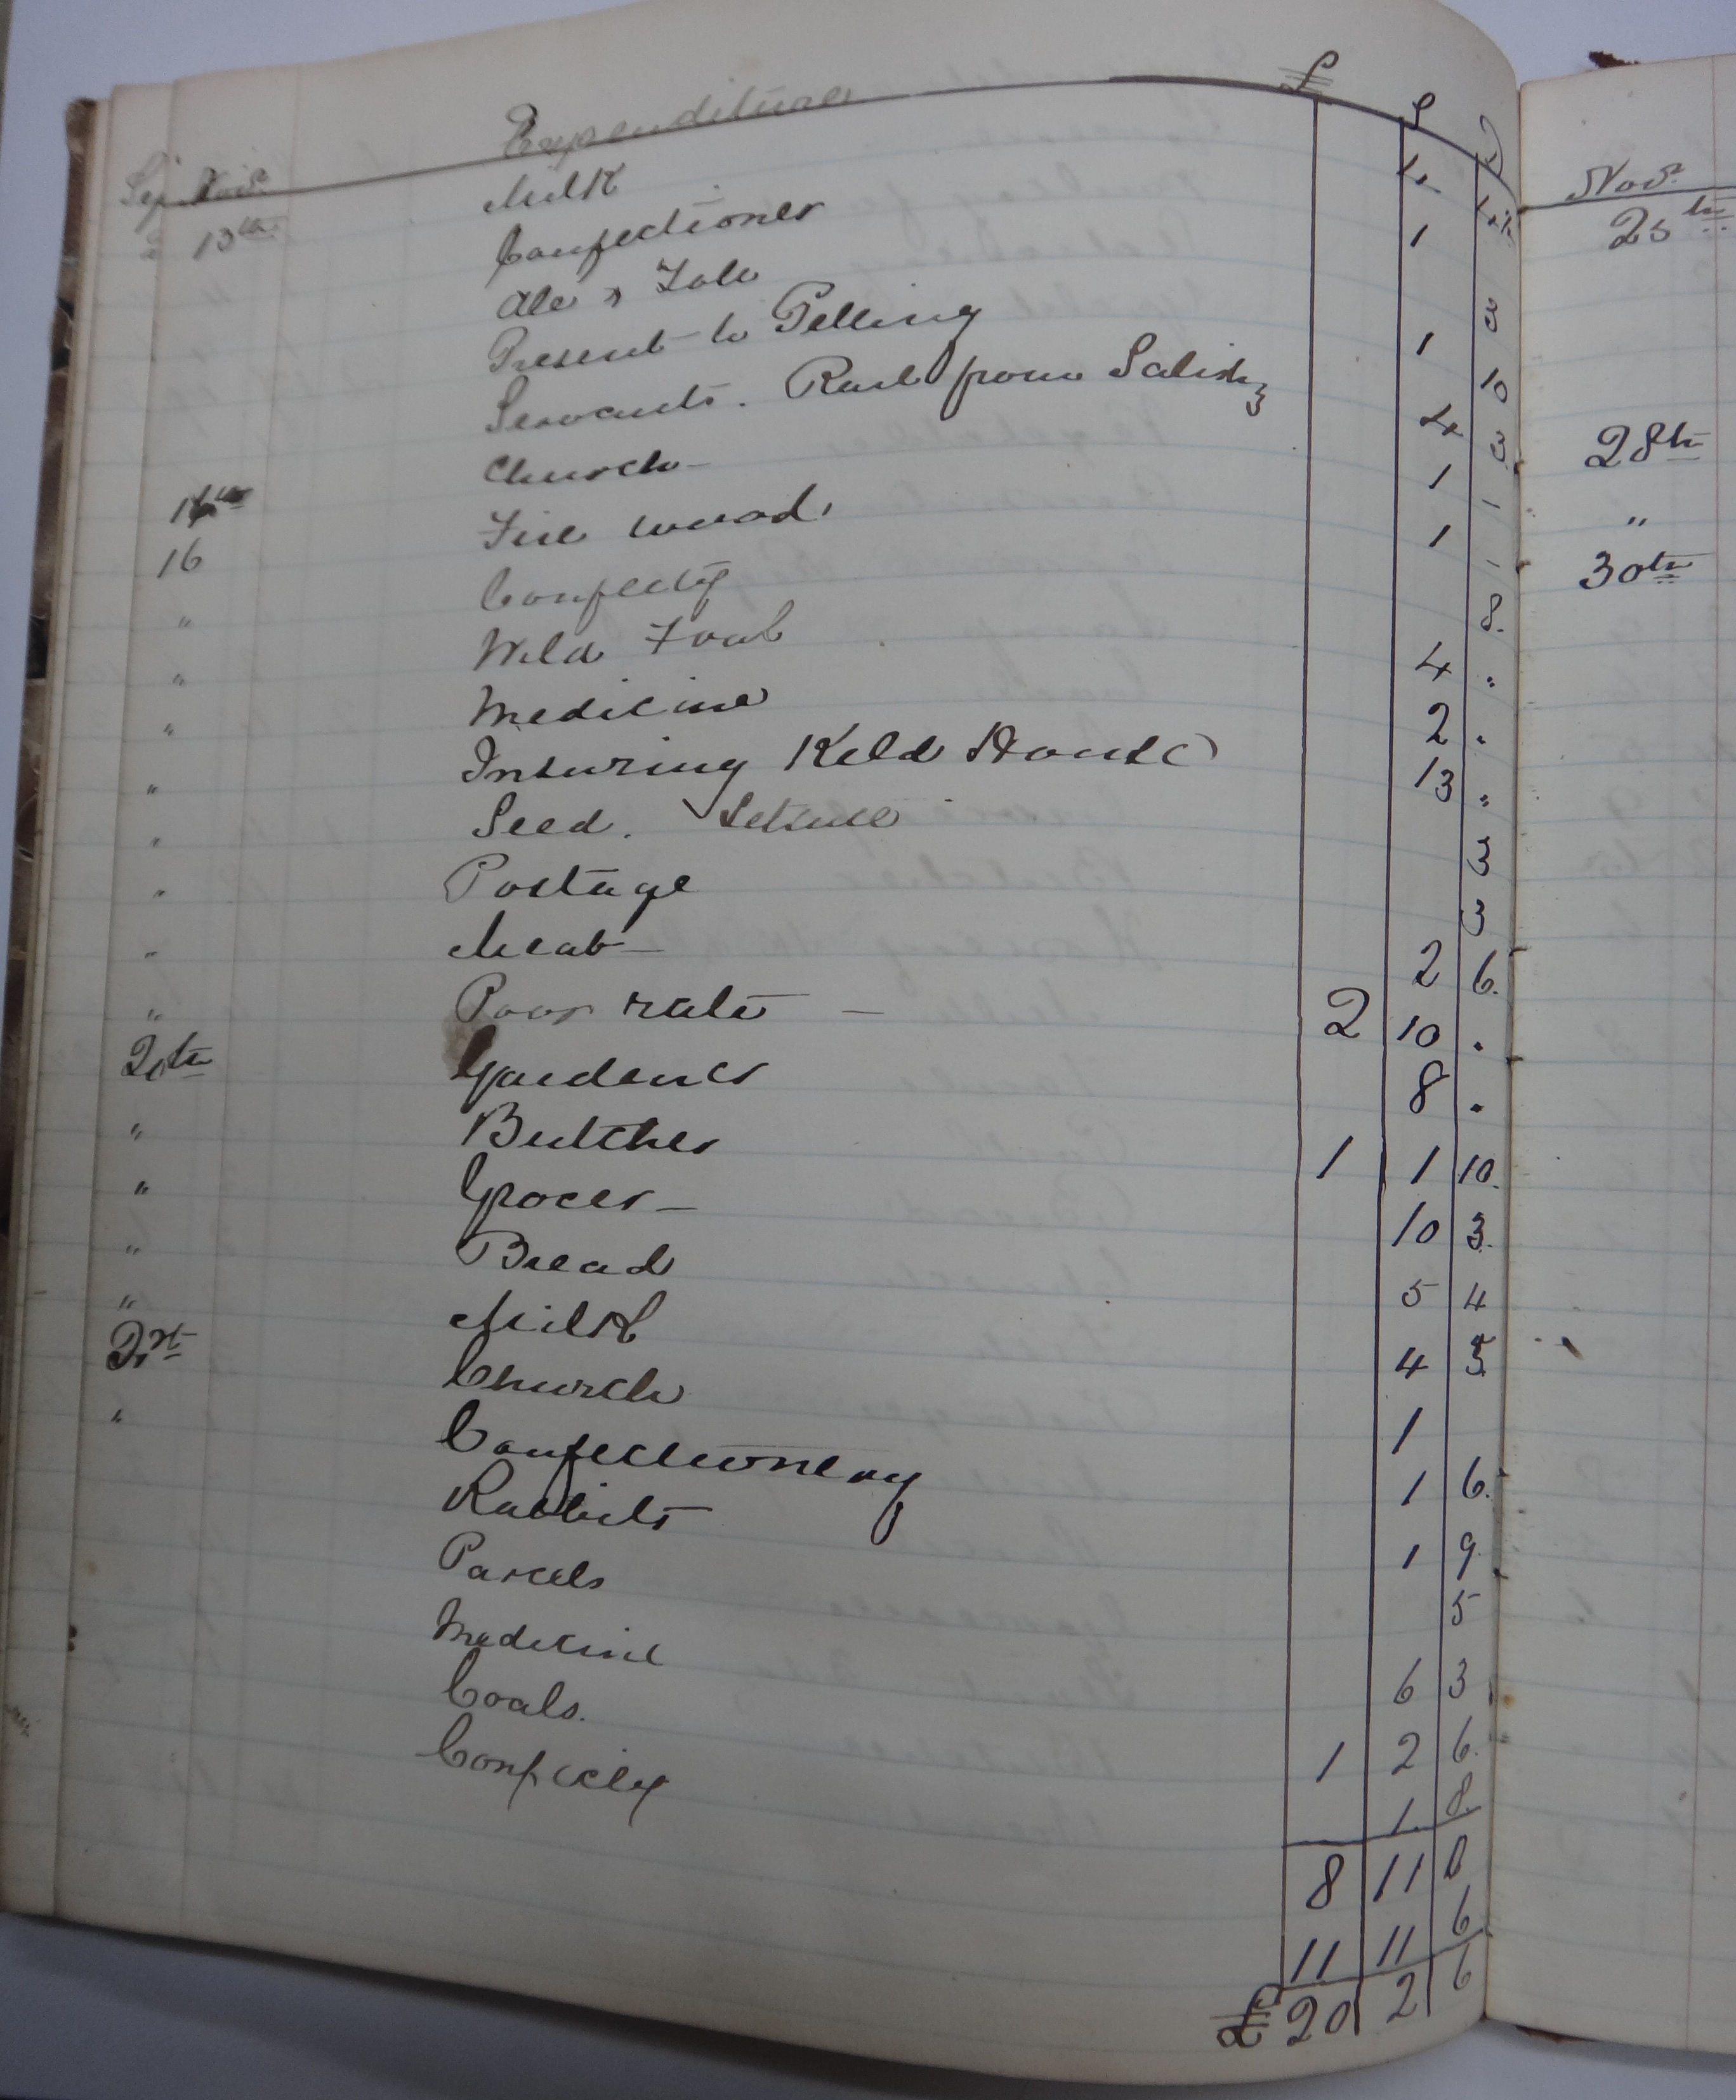 Expenditure £ S D
Nov.
13th Milk 4 4½
Confectioner 1
Ale & Tole 3
Present to Pelling 1 10
Servants. Rail from Salisby 4 3
Church 1 "
14th Fire wood. 1 "
16 Confecty 8.
" Wild Fowl 4 "
" Medicine 2 .
" Insuring Keld House 13 "
" Seed. Lettuce 3
" Postage 3
" Meat – 2 6.
" Poor rate – 2 10 .
20th Gardener 8 .
" Butcher 1 1 10.
" Grocer – 10 3.
" Bread 5 4
" Milk 4 5
21st Church 1
" Confectionery 1 6.
Rabbits 1 9
Parcels 5
Medicine 6 3
Coals. 1 2 6.
Confecty 1. 8.
8 11 0
11 11 6
£ 20 2 6
Nov.
25th
28th
"
30th